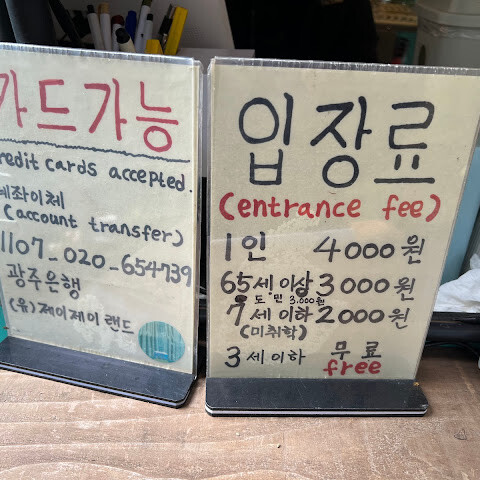 카드가능
redit cards accepted.
계좌이체
(account transfer)
1107-020-654739
광주은행
(유)제이제이랜드
입장료
(entrance fee)
1인 4000원
65세 이상 3000원
도·민 3,000원
7세 이하 2000원
(미취학)
3세 이하 무료
free